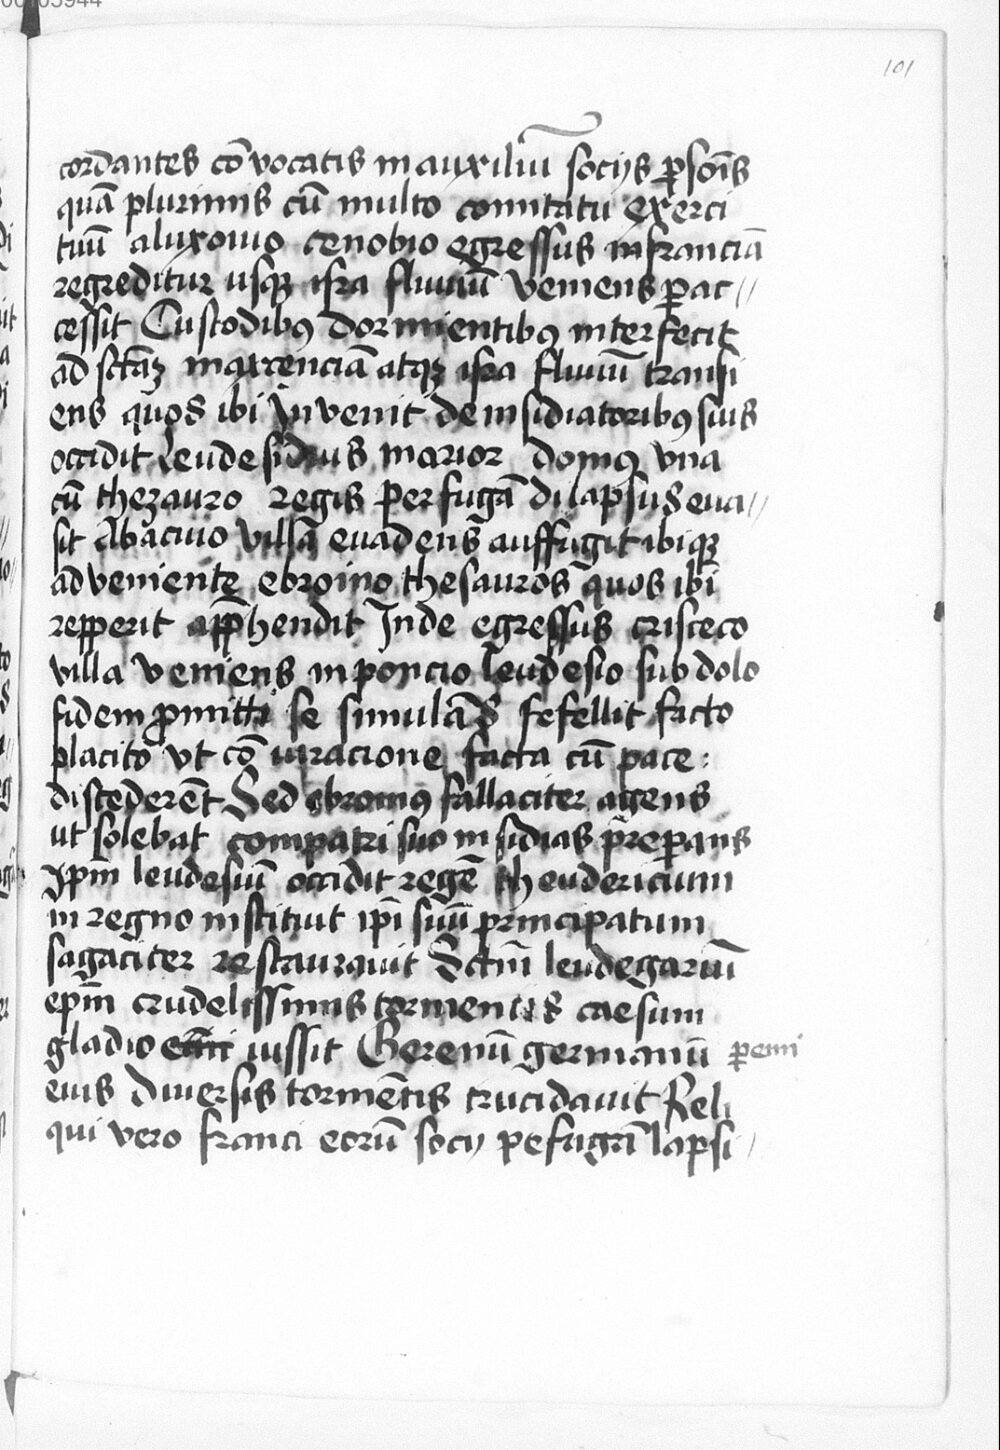 101
cordantes cō vocatis in auxiliū socijs p̱sonīs
quā plurimis cū multo comitatu exerci
tuū aluxouio cenobio egressus in franciā
regreditur usqꝫ isra fluuiū veniens p̱ac//
cessit Custodibꝯ dormientibꝯ interfecit
ad sctāꝫ maxenciā atqꝫ isra fluuiū transi
ens quos ibi Invenit de insidiatoribꝯ suis
occidit leudesidius maior domꝯ vna
cū thezauro regis per fugā dilapsus eua//
sit Abaciuio villā euadens auffugit ibiqꝫ
adveniente ebroino thesauros quos ibi
repperit app̱hendit Inde egressus crisceco
villa veniens in poncio leudesio sub dolo
fidem p̱mitti se simulās fefellit facto
placito vt cō iuracione facta cū pace :
discederēt Sed ebroinꝯ fallaciter agens
ut solebat compatri suo insidias prep̱ans
Ipm̄ leudesiū occidit regē theudericum
in regno instituit ip̄i suū principatum
sagaciter restaurauit Sctm̄ leudegariū
ep̄m crudelissimis tormentis caesum
gladio iussit Gerenū germanū p̱emi
eius diuersis tormētis trucidauit Reli
qui vero franci eorū socij pefugā lapsi /